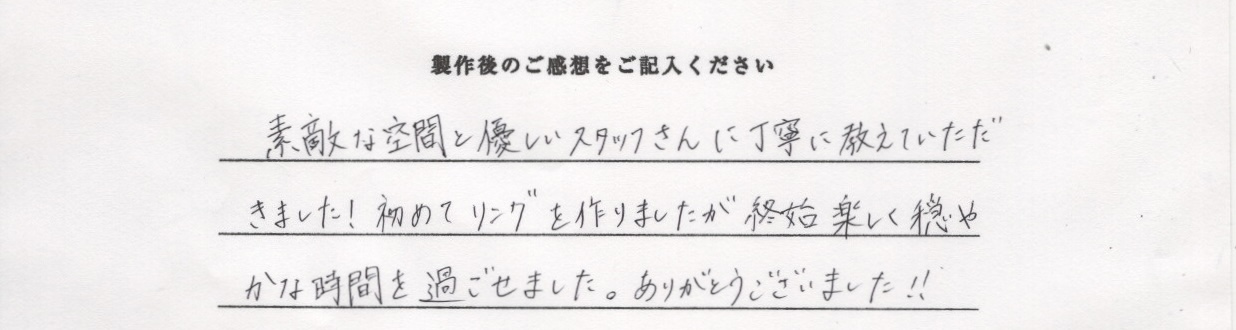 製作後のご感想をご記入ください
素敵な空間と優しいスタッフさんに丁寧に教えていただ
きました！初めてリングを作りましたが終始楽しく穏や
かな時間を過ごせました。ありがとうございました!!